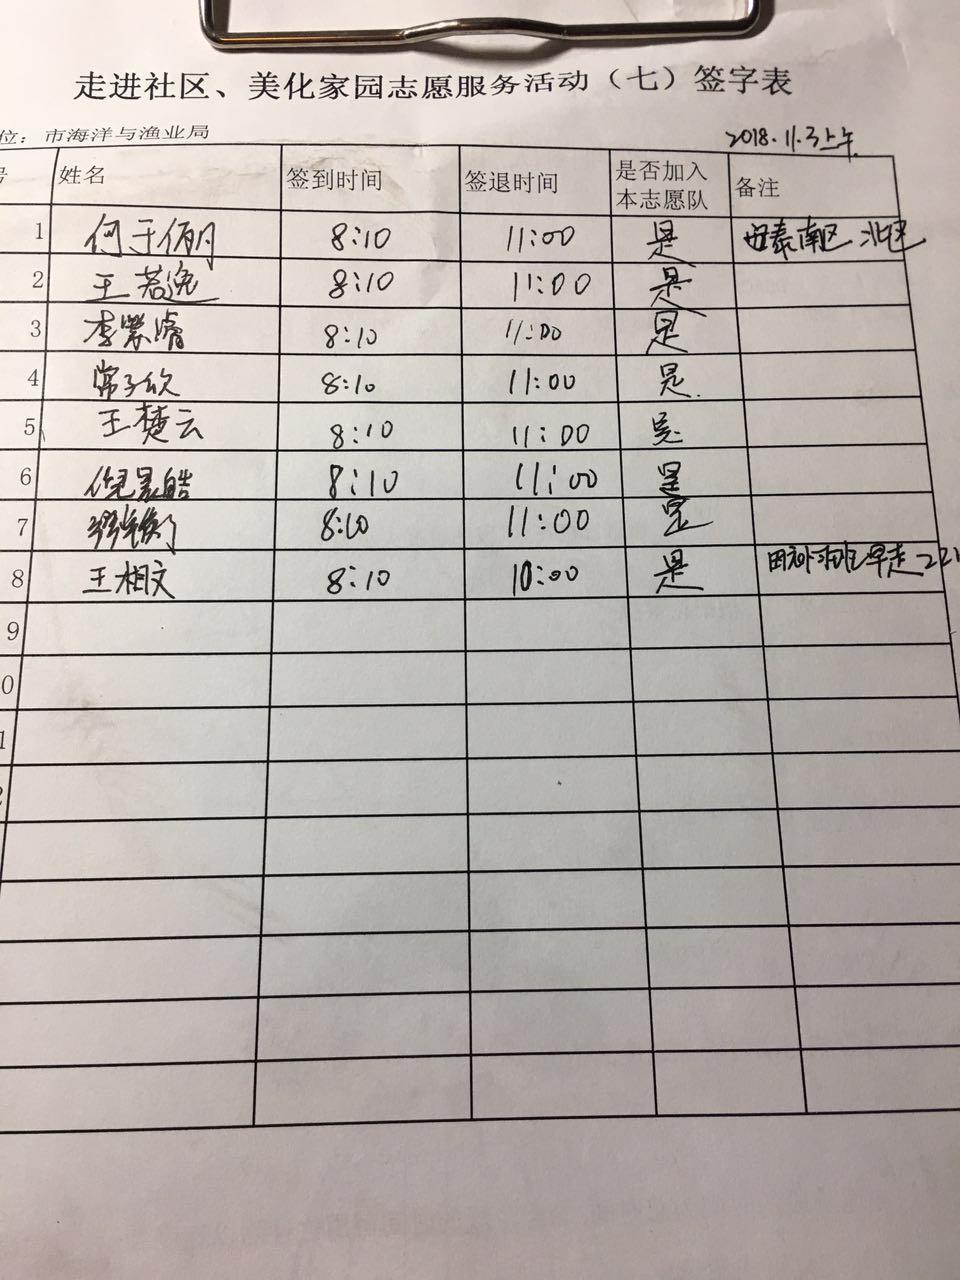 走进社区、美化家园志愿服务活动（七）签字表
位：市海洋与渔业局 2018.11.3上午
号 姓名 签到时间 签退时间 是否加入本志愿队 备注
1 何于俏月 8:10 11:00 是 南区 北区
2 王若逸 8:10 11:00 是
3 李 8:10 11:00 是
4 常子欣 8:10 11:00 是
5 王楚云 8:10 11:00 是
6 倪昊皓 8:10 11:00 是
7 8:10 11:00 是
8 王相文 8:10 10:00 是 早走
9
0
1
2